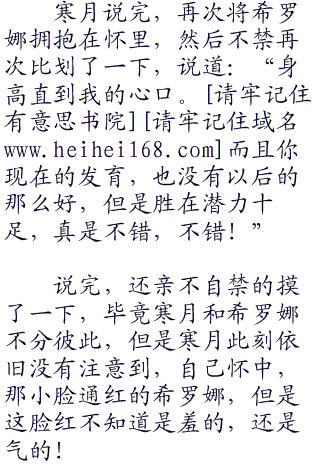 寒月说完，再次将希罗
娜拥抱在怀里，然后不禁再
次比划了一下，说道：“身
高直到我的心口。[请牢记住
有意思书院][请牢记住域名
www.heihei168.com]而且你
现在的发育，也没有以后的
那么好，但是胜在潜力十
足，真是不错，不错！”
说完，还亲不自禁的摸
了一下，毕竟寒月和希罗娜
不分彼此，但是寒月此刻依
旧没有注意到，自己怀中，
那小脸通红的希罗娜，但是
这脸红不知道是羞的，还是
气的！